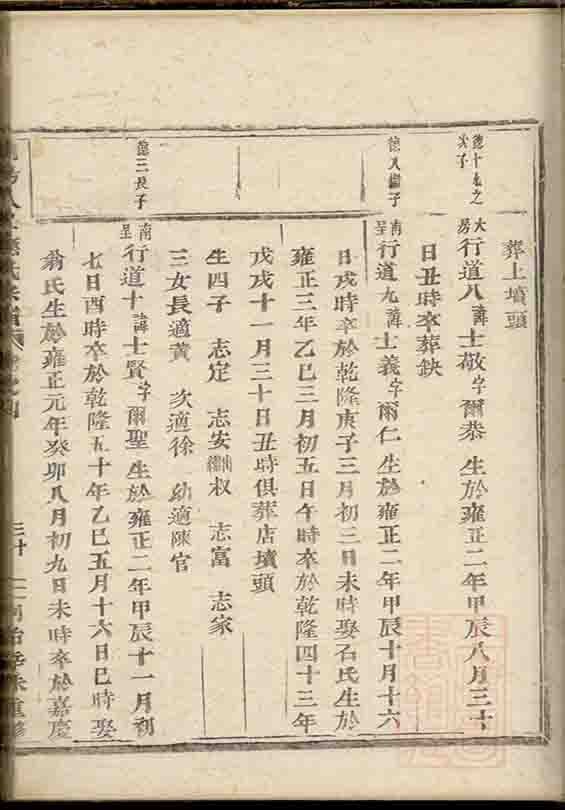 葬上墳頭
德十九之次子
大房行道八諱士敬字爾恭生於雍正二年甲辰八月三十
日丑時卒葬缺
德入繼子
南呈行道九諱士義字爾仁生於雍正二年甲辰十月十六
日戌時卒於乾隆庚子三月初三日未時娶石氏生於
雍正三年乙巳三月初五日午時卒於乾隆四十三年
戊戌十一月三十日丑時俱葬店墳頭
生四子 志定 志安出繼叔 志富 志家
三女長適黃 次適徐 幼適陳官
德三長子
南呈行道十諱士賢字爾聖生於雍正二年甲辰十一月初
七日酉時卒於乾隆五十年乙巳五月十六日巳時娶
翁氏生於雍正元年癸卯八月初九日未時卒於嘉慶
氏宗譜 三十一 同治辛未重修